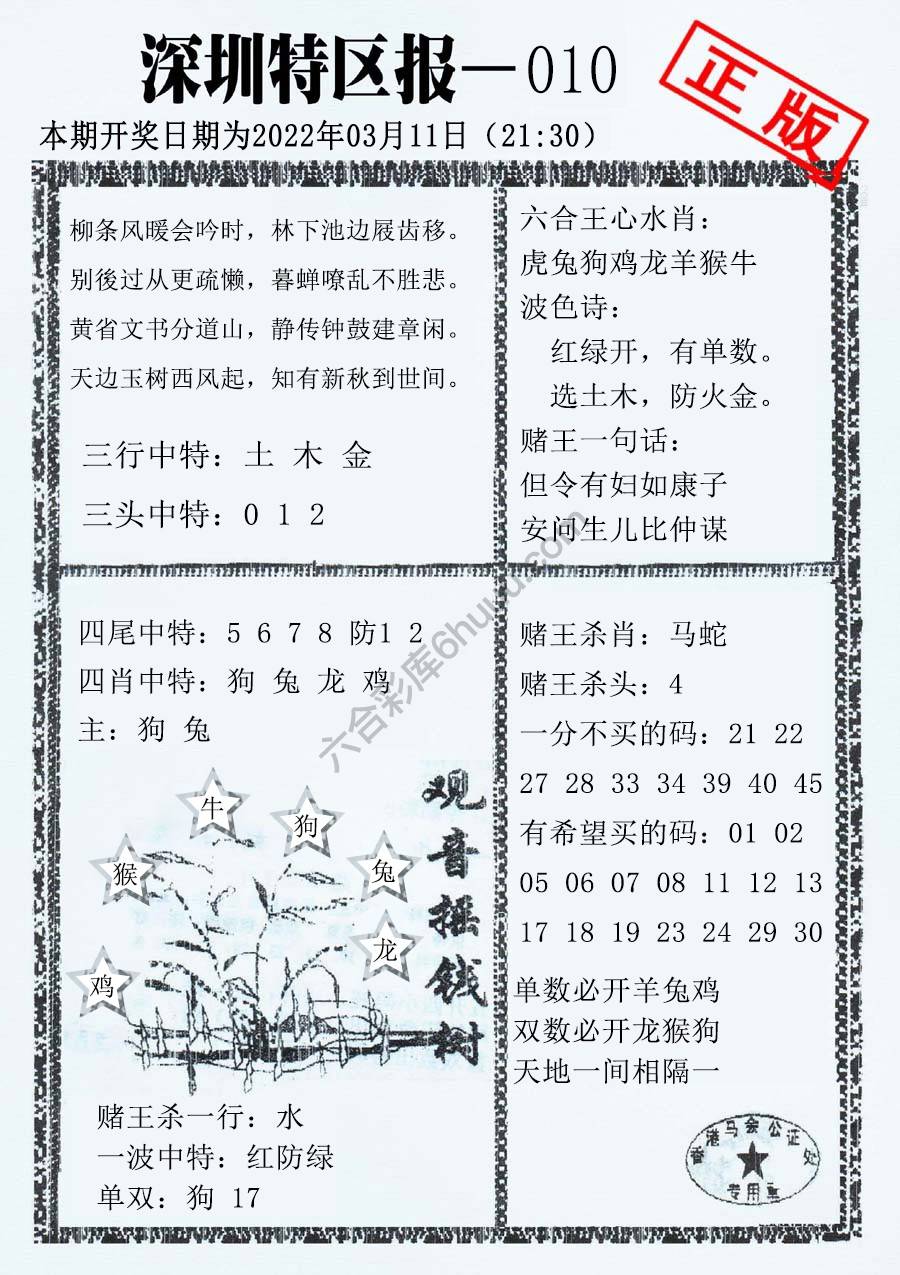 深圳特区报—010
正版
本期开奖日期为2022年03月11日（21:30）
柳条风暖会吟时，林下池边屐齿移。
别後过从更疏懒，暮蝉嘹乱不胜悲。
黄省文书分道山，静传钟鼓建章闲。
天边玉树西风起，知有新秋到世间。
三行中特：土 木 金
三头中特：0 1 2
六合王心水肖：
虎兔狗鸡龙羊猴牛
波色诗：
红绿开，有单数。
选土木，防火金。
赌王一句话：
但令有妇如康子
安问生儿比仲谋
四尾中特：5 6 7 8 防1 2
四肖中特：狗 兔 龙 鸡
主：狗 兔
牛
狗
猴
兔
龙
鸡
观音摇钱树
赌王杀一行：水
一波中特：红防绿
单双：狗 17
赌王杀肖：马蛇
赌王杀头：4
一分不买的码：21 22
27 28 33 34 39 40 45
有希望买的码：01 02
05 06 07 08 11 12 13
17 18 19 23 24 29 30
单数必开羊兔鸡
双数必开龙猴狗
天地一间相隔一
香港马会公证处
专用章
六合彩库6huuu.com